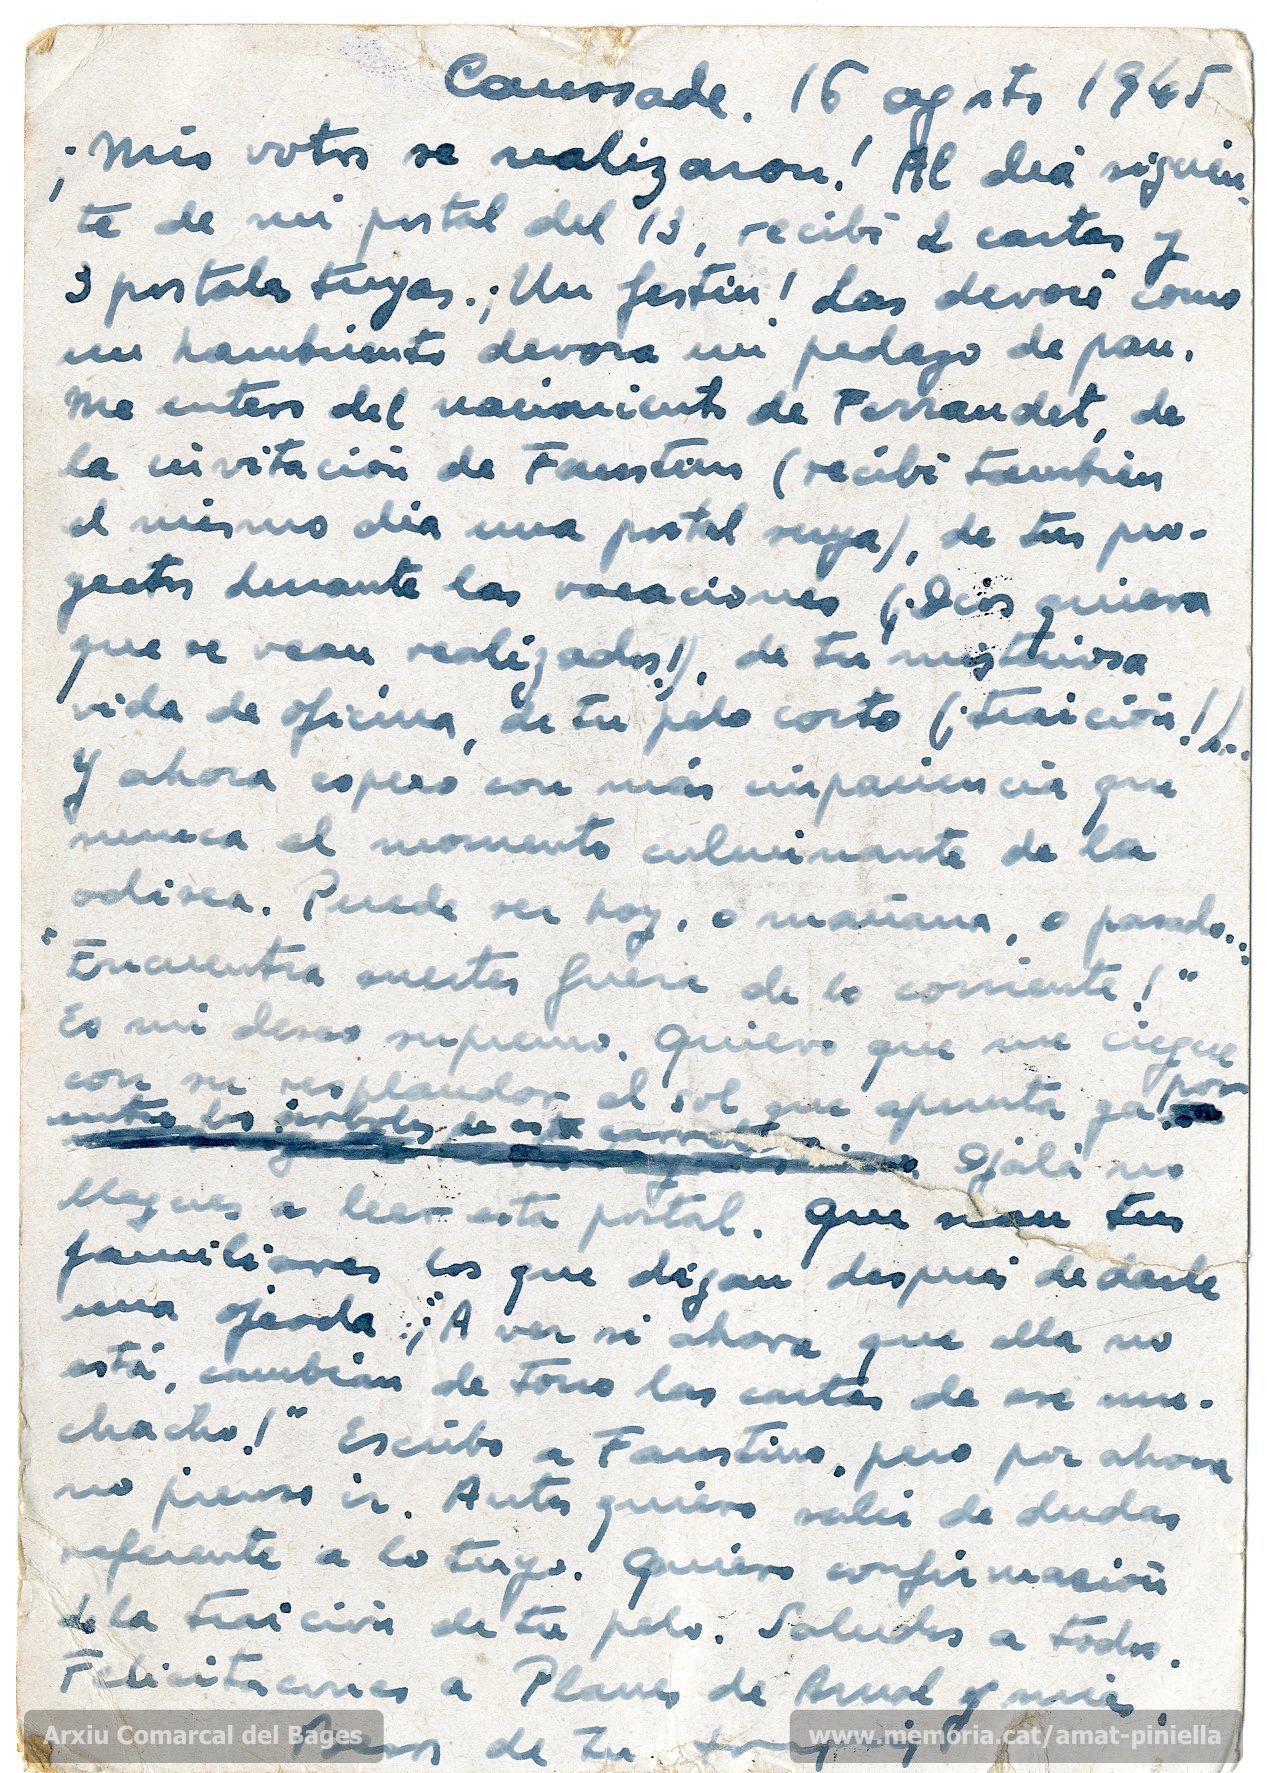 Caussade, 16 agosto 1945
¡Mis votos se realizaron! Al diá siguien-
te de mi postal del 13, recibí 2 cartas y
3 postales tuyas. ¡Un festin! Las devoré como
un hambriento devora un pedazo de pan.
Me entero del nacimiento de Ferrandet, de
la invitación de Faustino (recibí tambien
el mismo dia una postal suya), de tus pro-
yectos durante las vacaciones (¡Dios quiera
que se vean realizados!), de tu misteriosa
vida de oficina, de tu pelo corto (¡traición!)...
Y ahora espero con más impaciencia que
nunca el momento culminante de la
odisea. Puede ser hoy, o mañana, o pasado...
"Encuentra fuera de lo corriente!"
Es mi deseo supremo. Quiero que me ciegue
con su resplandor el sol que apunta ya por
entre los árboles de esta carretera. Ojalá no
llegues a leer esta postal. Que sean tus
familiares los que digan después de darle
una ojeada: "¡A ver si ahora que ella no
está, cambian de tono las cartas de ese mu-
chacho!" Escribo a Faustino, pero por ahora
no pienso ir. Antes quiero salir de dudas
referente a lo tuyo. Quiero confirmación
de la traición de tu pelo. Saludos a todos.
Felicitaciones a Planes de y mias.
de tu
Arxiu Comarcal del Bages
www.memoria.cat/amat-piniella